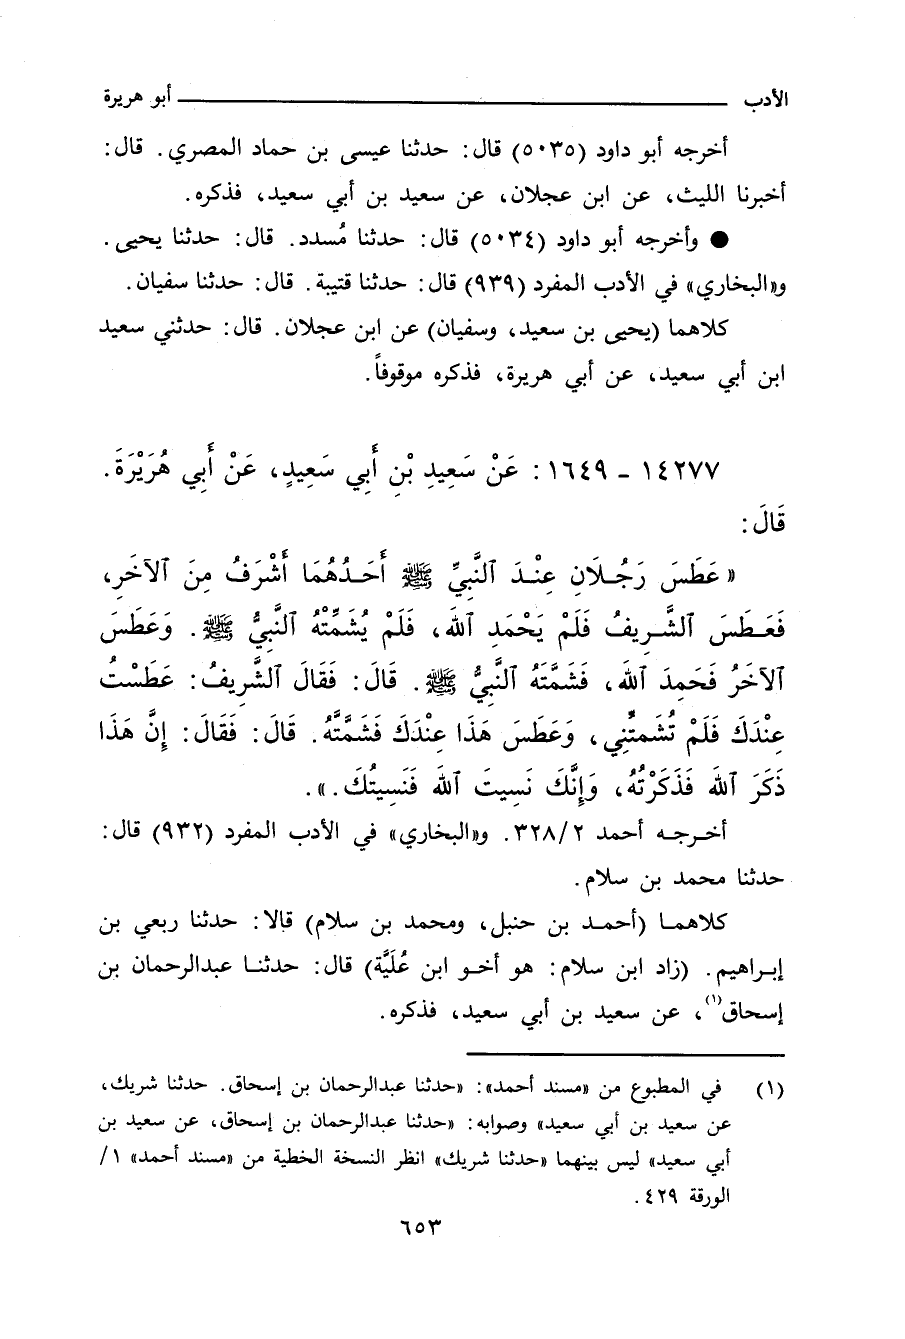 الأدب ــــــــــــــــــــــــــــــــ أبو هريرة
أخرجه أبو داود (٥٠٣٥) قال: حدثنا عيسى بن حماد المصري. قال:
أخبرنا الليث، عن ابن عجلان، عن سعيد بن أبي سعيد، فذكره.
● وأخرجه أبو داود (٥٠٣٤) قال: حدثنا مُسدد. قال: حدثنا يحيى.
و«البخاري» في الأدب المفرد (٩٣٩) قال: حدثنا قتيبة. قال: حدثنا سفيان.
كلاهما (يحيى بن سعيد، وسفيان) عن ابن عجلان. قال: حدثني سعيد
ابن أبي سعيد، عن أبي هريرة، فذكره موقوفاً.
١٤٢٧٧ - ١٦٤٩: عَنْ سَعِيدِ بْنِ أَبِي سَعِيدٍ، عَنْ أَبِي هُرَيْرَةَ.
قَالَ:
« عَطَسَ رَجُلَانِ عِنْدَ ٱلنَّبِيِّ ﷺ أَحَدُهُمَا أَشْرَفُ مِنَ ٱلآخَرِ،
فَعَطَسَ ٱلشَّرِيفُ فَلَمْ يَحْمَدِ ٱللهَ، فَلَمْ يُشَمِّتْهُ ٱلنَّبِيُّ ﷺ. وَعَطَسَ
ٱلآخَرُ فَحَمِدَ ٱللهَ، فَشَمَّتَهُ ٱلنَّبِيُّ ﷺ. قَالَ: فَقَالَ ٱلشَّرِيفُ: عَطَسْتُ
عِنْدَكَ فَلَمْ تُشَمِّتْنِي، وَعَطَسَ هَذَا عِنْدَكَ فَشَمَّتَّهُ. قَالَ: فَقَالَ: إِنَّ هَذَا
ذَكَرَ ٱللهَ فَذَكَرْتُهُ، وَإِنَّكَ نَسِيتَ ٱللهَ فَنَسِيتُكَ.».
أخرجه أحمد ٣٢٨/٢. و«البخاري» في الأدب المفرد (٩٣٢) قال:
حدثنا محمد بن سلام.
كلاهما (أحمد بن حنبل، ومحمد بن سلام) قالا: حدثنا ربعي بن
إبراهيم. (زاد ابن سلام: هو أخو ابن عُلَيَّة) قال: حدثنا عبدالرحمان بن
إسحاق(١)، عن سعيد بن أبي سعيد، فذكره.
(١) في المطبوع من «مسند أحمد»: «حدثنا عبدالرحمان بن إسحاق. حدثنا شريك،
عن سعيد بن أبي سعيد» وصوابه: «حدثنا عبدالرحمان بن إسحاق، عن سعيد بن
أبي سعيد» ليس بينهما «حدثنا شريك» انظر النسخة الخطية من «مسند أحمد» ١/
الورقة ٤٢٩.
٦٥٣